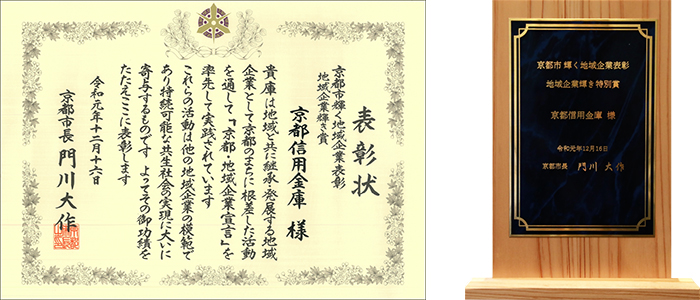 表彰状
京都市輝く地域企業表彰
地域企業輝き賞
京都信用金庫 様
貴庫は地域と共に継承・発展する地域
企業として京都のまちに根差した活動
を通して「京都・地域企業宣言」を
率先して実践されています
これらの活動は他の地域企業の模範で
あり持続可能な共生社会の実現に大いに
寄与するものです よってその御功績を
たたえここに表彰します
令和元年十二月十六日
京都市長 門川大作
京都市 輝く地域企業表彰
地域企業輝き特別賞
京都信用金庫 様
令和元年12月16日
京都市長 門川 大作